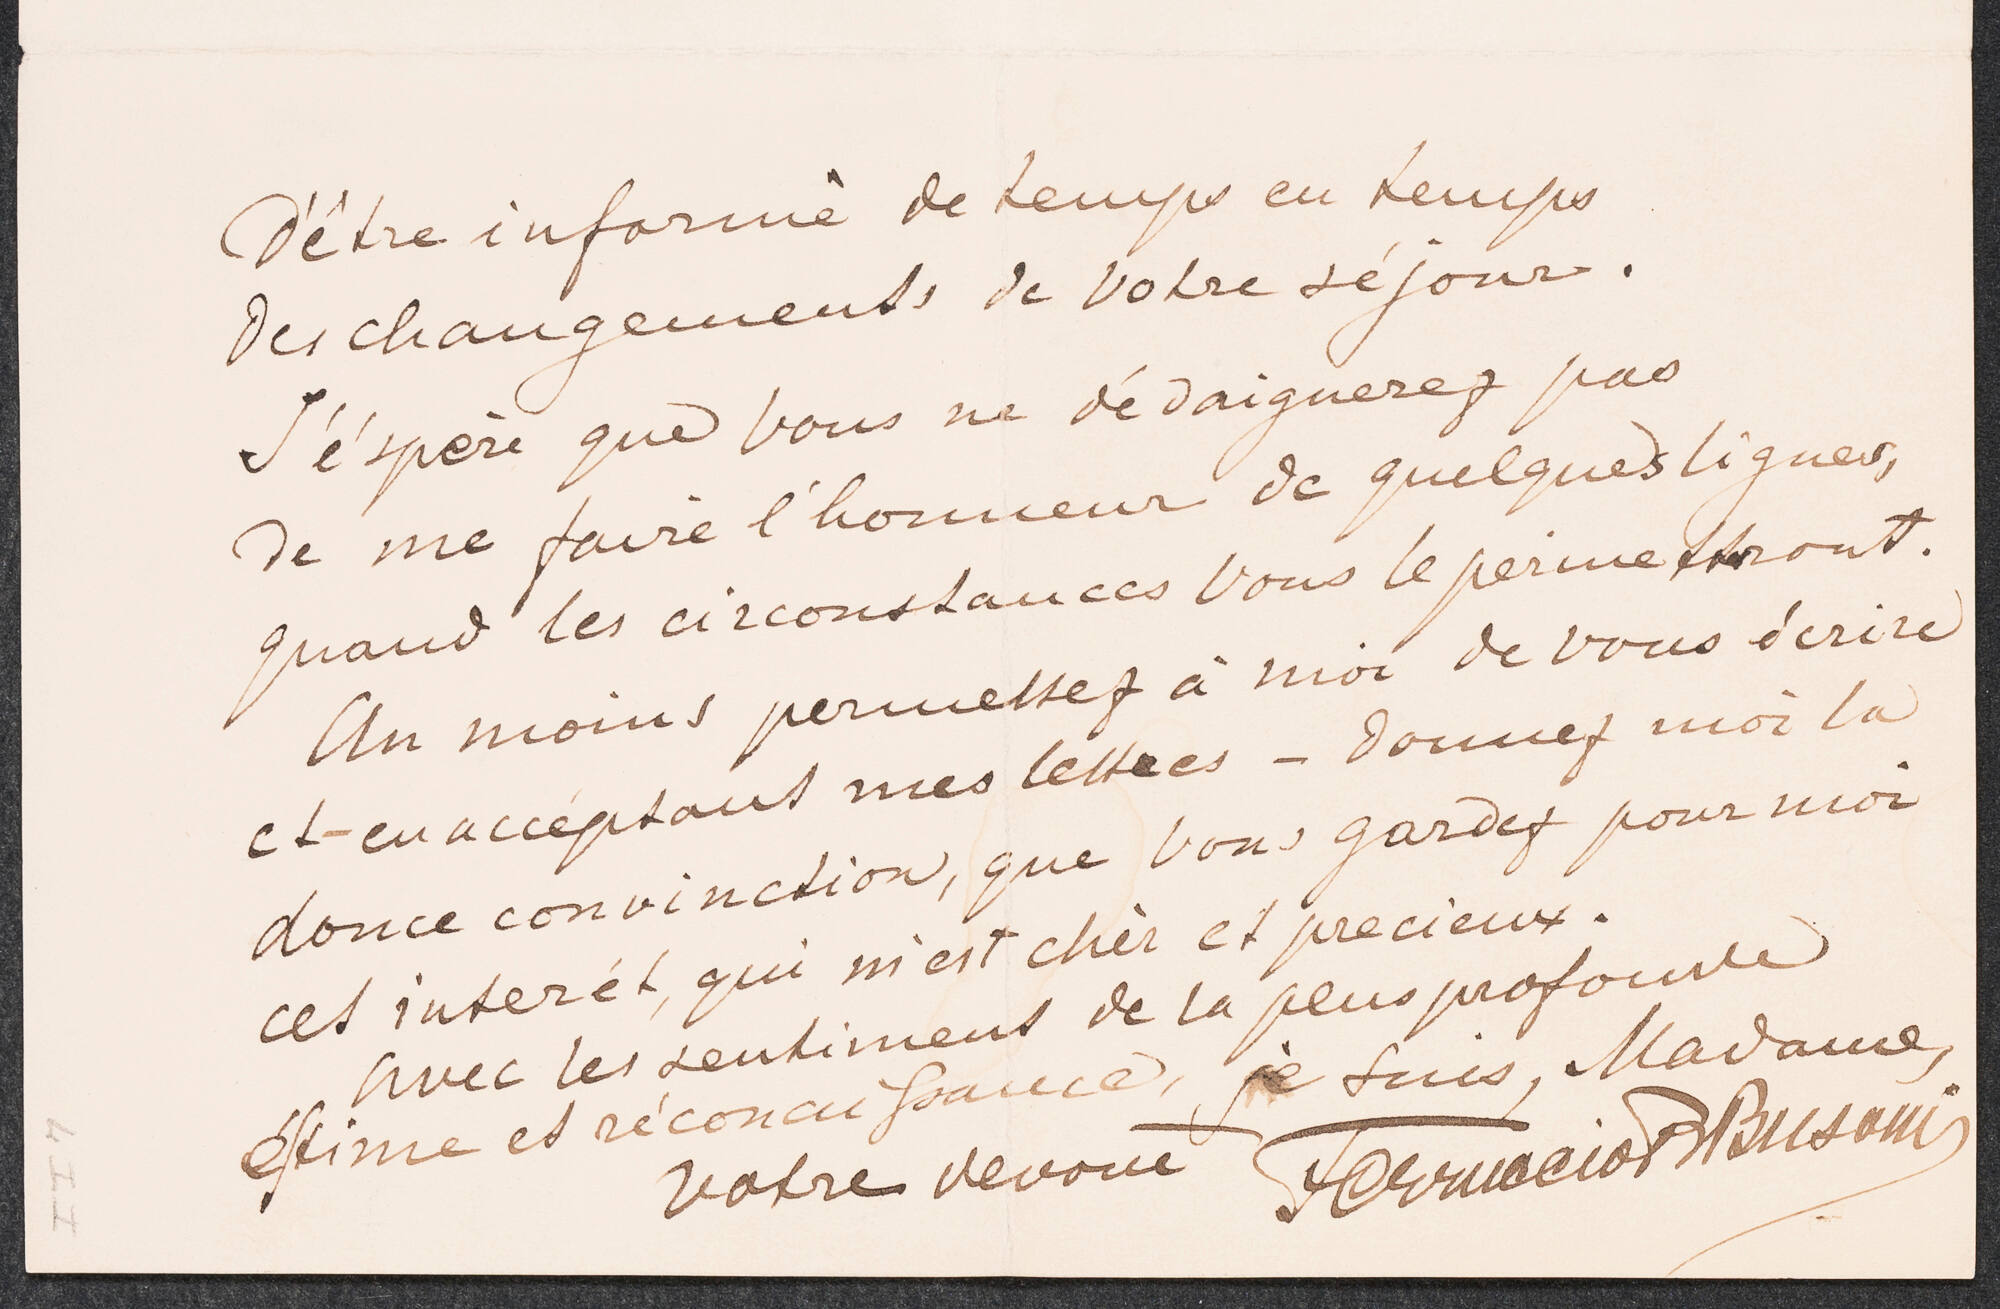 d'être informé de temps en temps
des changements de votre séjour.
J'éspère que vous ne dédaignerez pas
de me faire l'honneur de quelques lignes,
quand les circonstances vous le permettront.
Au moins permettez à moi de vous écrire
et-en accéptant mes lettres – donnez moi la
douce convinction, que vous gardez pour moi
cet interét, qui m'est chèr et precieux.
Avec les sentiment de la plus profonde
éstime et réconnaissance, je suis, Madame,
votre devoué Ferruccio B Busoni
III